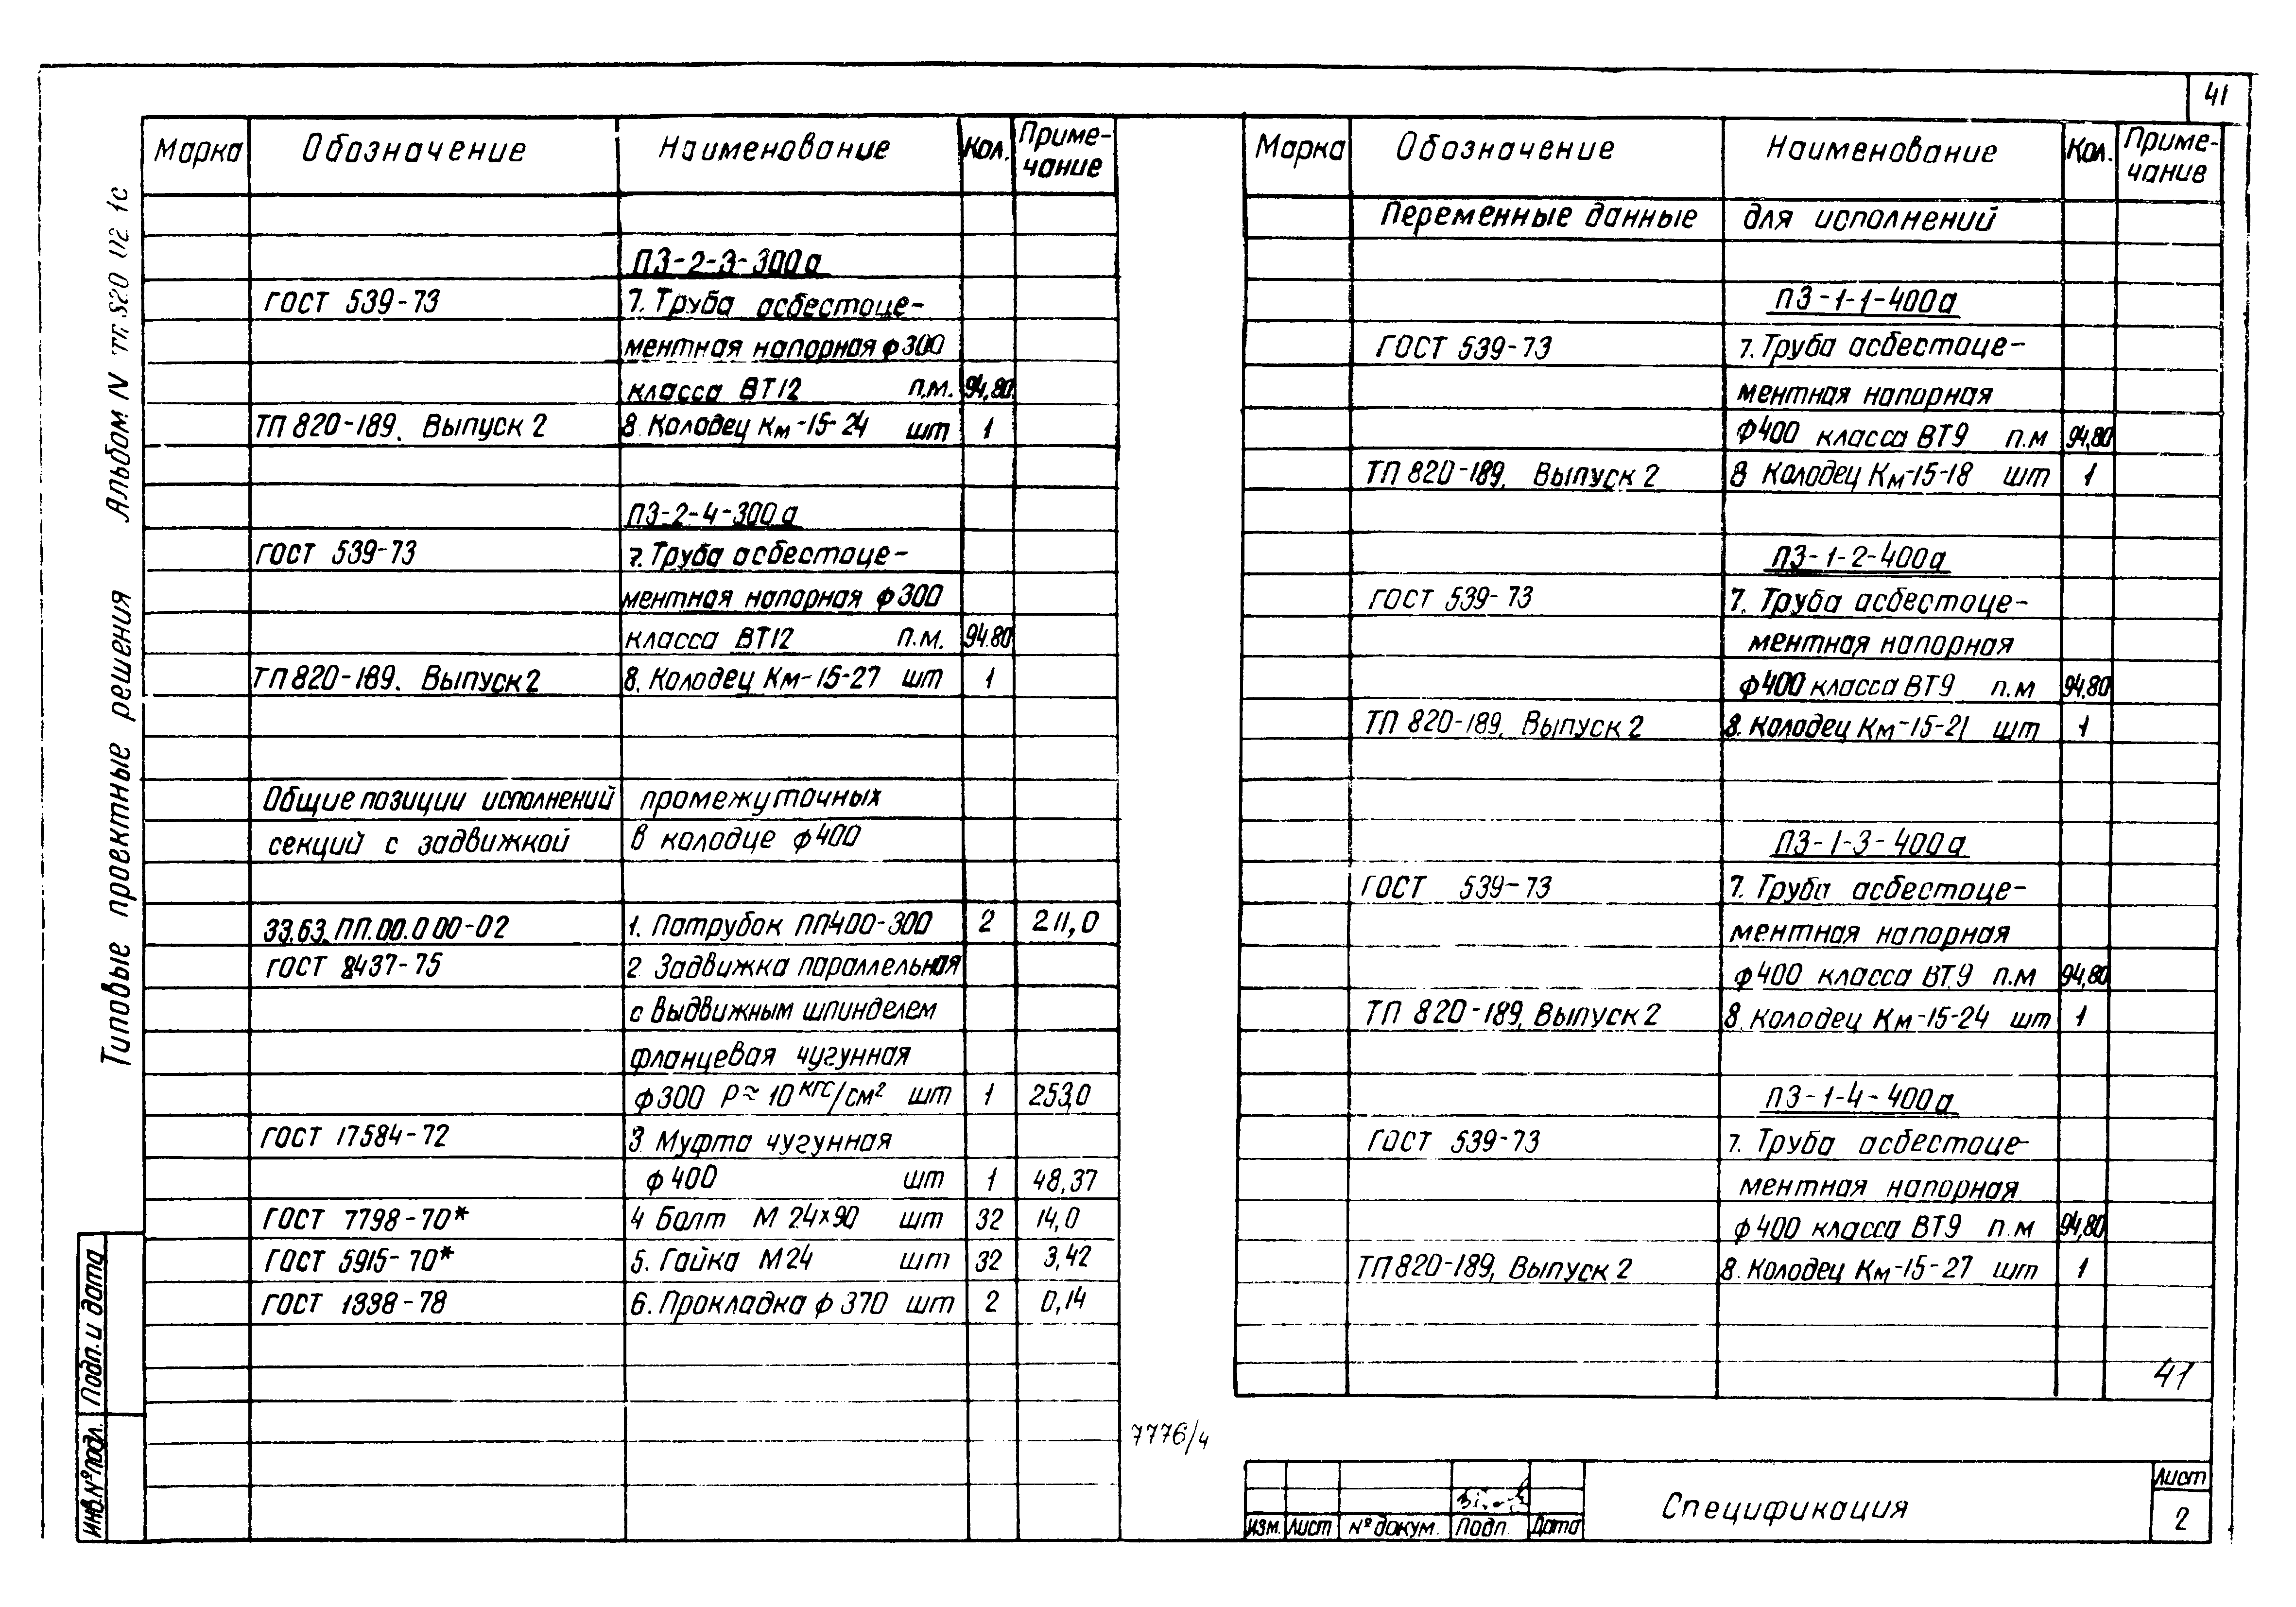 41
Типовые проектные решения Альбом IV т.п. 820 1с
Марка Обозначение Наименование Кол. Примечание
ПЗ-2-3-300а
ГОСТ 539-73 7. Труба асбестоце-
ментная напорная ф300
класса ВТ12 п.м. 94,80
ТП 820-189. Выпуск 2 8. Колодец Км-15-24 шт 1
ПЗ-2-4-300а
ГОСТ 539-73 7. Труба асбестоце-
ментная напорная ф300
класса ВТ12 п.м. 94.80
ТП 820-189. Выпуск 2 8. Колодец Км-15-27 шт 1
Общие позиции исполнений промежуточных
секций с задвижкой в колодце ф400
33.63.ПП.00.000-02 1. Патрубок ПП400-300 2 211,0
ГОСТ 8437-75 2 Задвижка параллельная
с выдвижным шпинделем
фланцевая чугунная
ф300 Р≈10 кгс/см² шт 1 253,0
ГОСТ 17584-72 3 Муфта чугунная
ф400 шт 1 48,37
ГОСТ 7798-70* 4 Болт М 24×90 шт 32 14,0
ГОСТ 5915-70* 5. Гайка М24 шт 32 3,42
ГОСТ 1338-78 6. Прокладка ф370 шт 2 0,14
Марка Обозначение Наименование Кол. Примечание
Переменные данные для исполнений
ПЗ-1-1-400а
ГОСТ 539-73 7. Труба асбестоце-
ментная напорная
ф400 класса ВТ9 п.м 94,80
ТП 820-189. Выпуск 2 8 Колодец Км-15-18 шт 1
ПЗ-1-2-400а
ГОСТ 539-73 7. Труба асбестоце-
ментная напорная
ф400 класса ВТ9 п.м 94,80
ТП 820-189. Выпуск 2 8. Колодец Км-15-21 шт 1
ПЗ-1-3-400а
ГОСТ 539-73 7. Труба асбестоце-
ментная напорная
ф400 класса ВТ9 п.м 94,80
ТП 820-189, Выпуск 2 8. Колодец Км-15-24 шт 1
ПЗ-1-4-400а
ГОСТ 539-73 7. Труба асбестоце-
ментная напорная
ф400 класса ВТ9 п.м 94,80
ТП 820-189, Выпуск 2 8. Колодец Км-15-27 шт 1
41
7776/4
Инв.№подл. Подп. и дата
Изм. Лист № докум. Подп. Дата
Спецификация
Лист
2